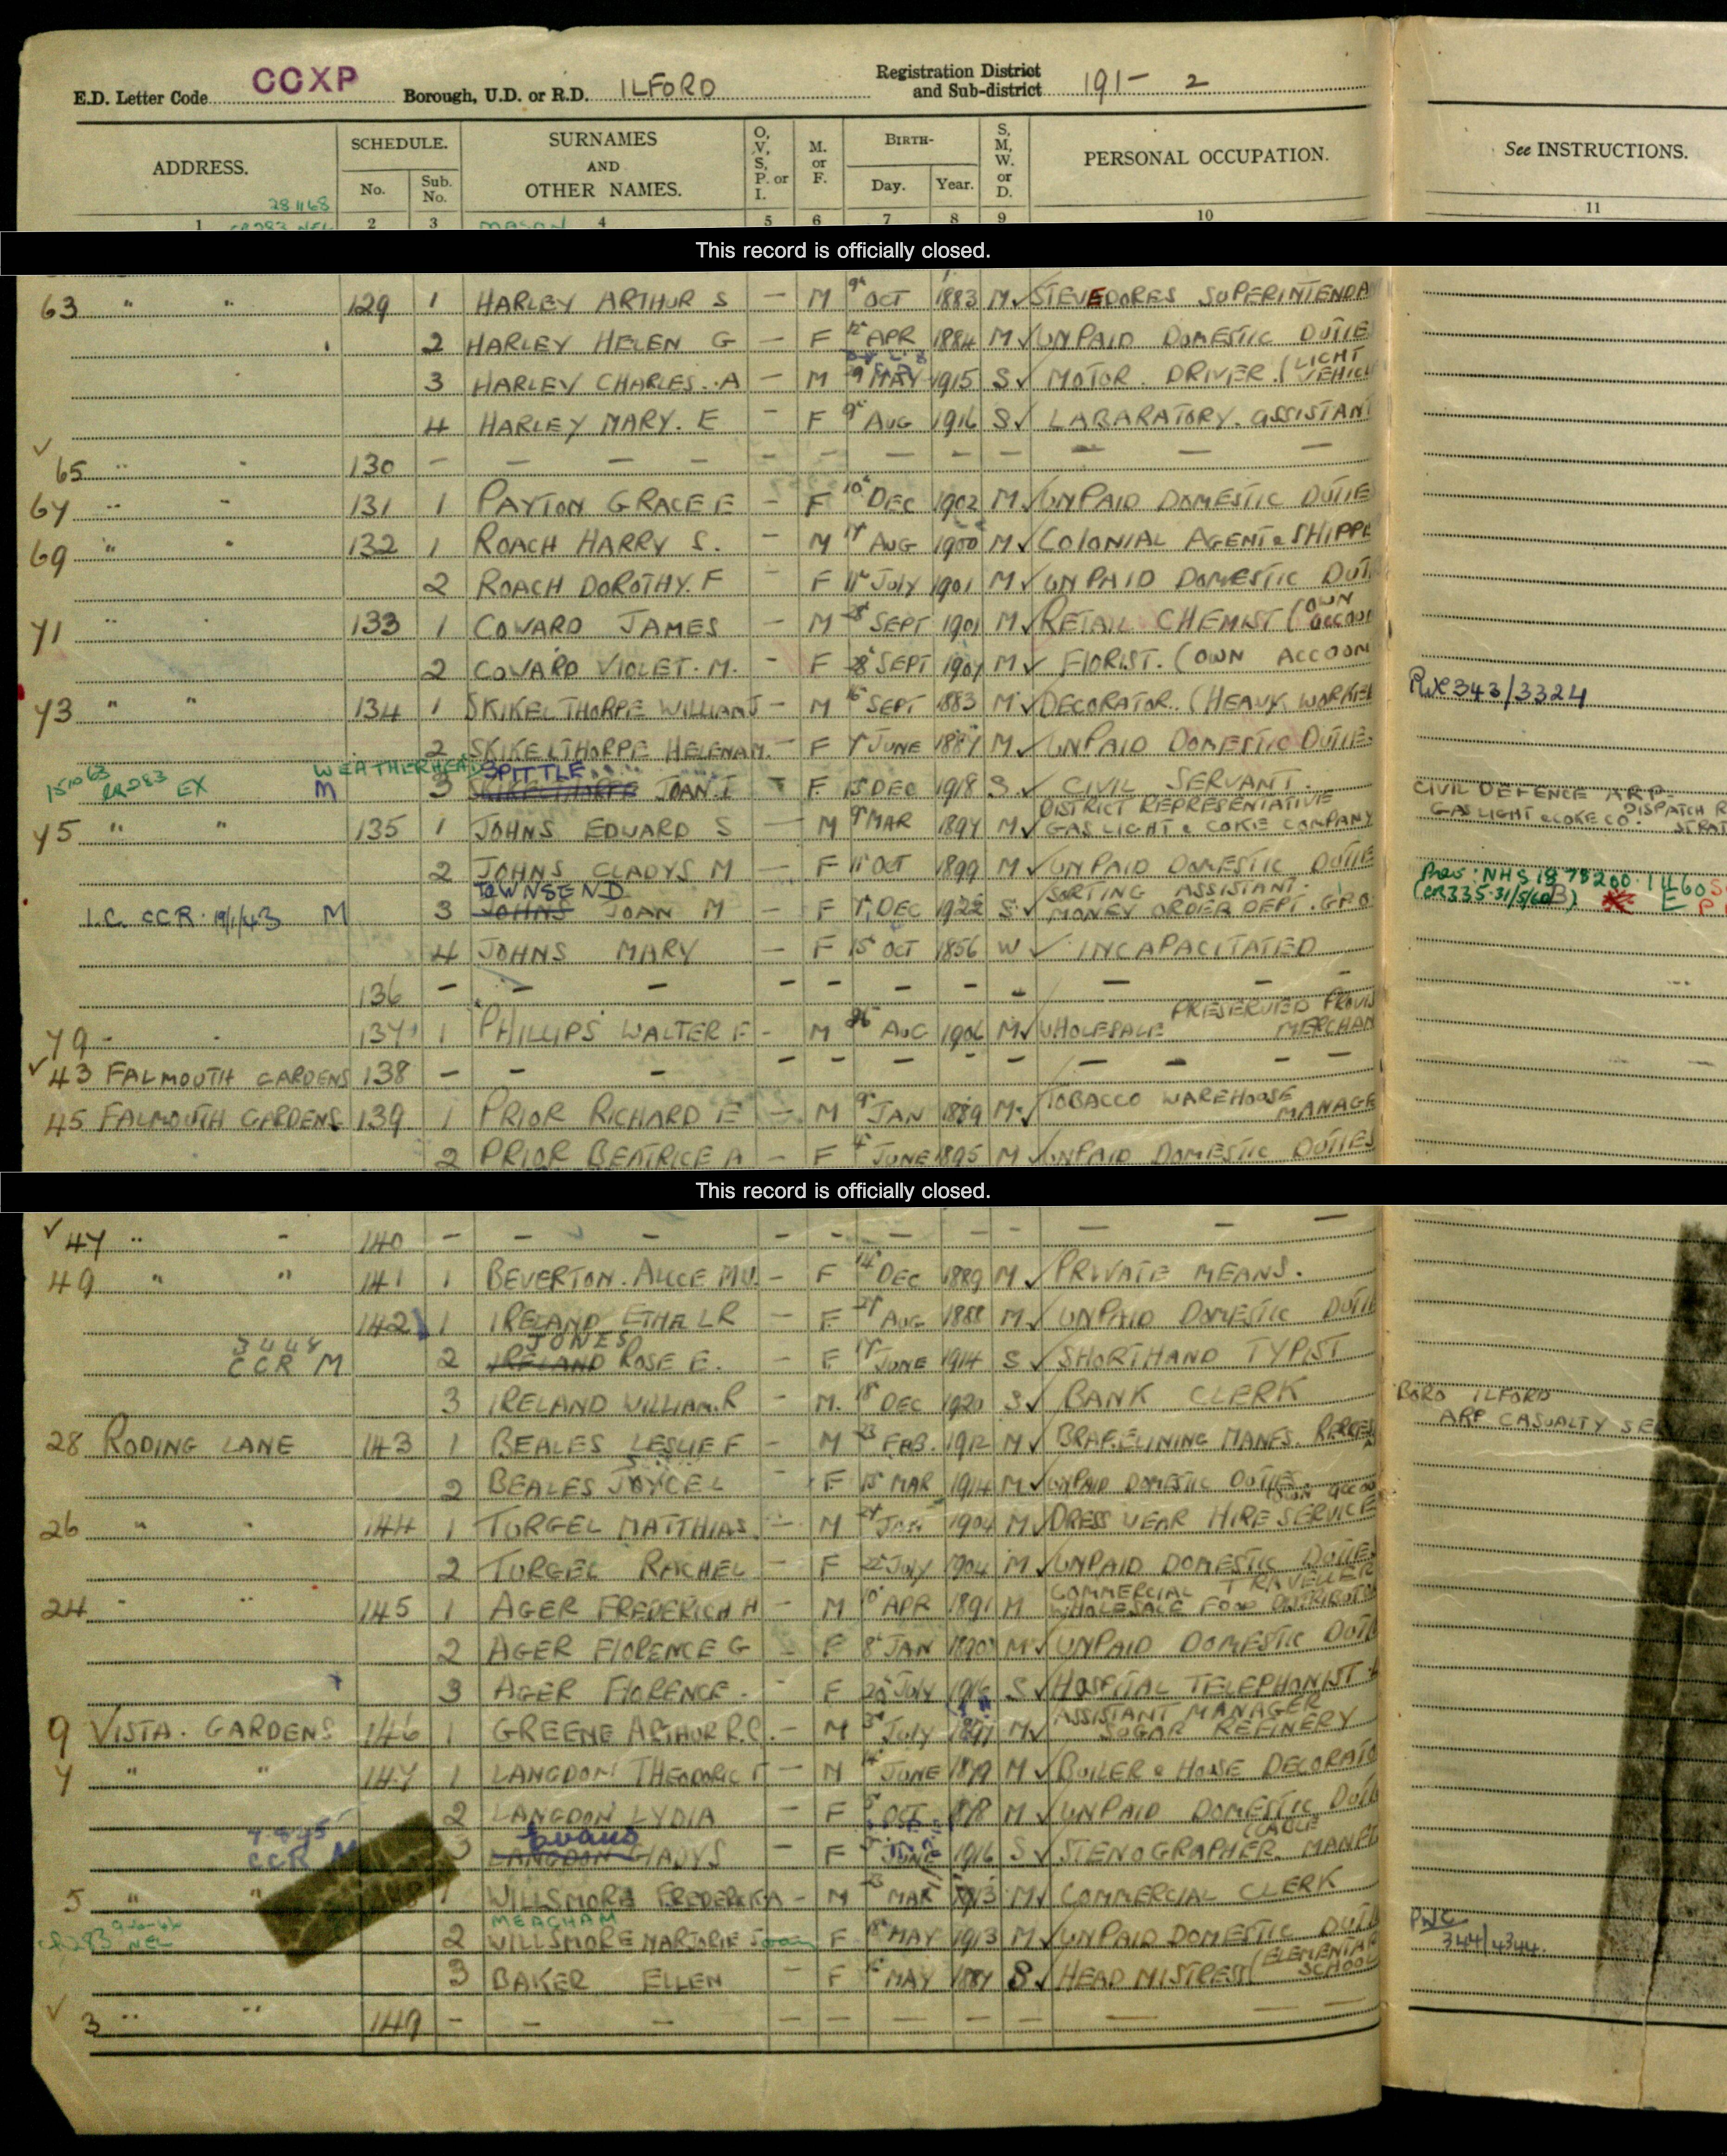 E.D. Letter Code COXP Borough, U.D. or R.D. ILFORD Registration District and Sub-district 191- 2
ADDRESS. SCHEDULE. No. Sub. No. SURNAMES AND OTHER NAMES. O, V, S, P. or I. M. or F. BIRTH- Day. Year. S, M, W. or D. PERSONAL OCCUPATION. See INSTRUCTIONS.
28 11 68
1 2 3 4 5 6 7 8 9 10 11
CR283 NEL MASON
This record is officially closed.
63 " " 129 1 HARLEY ARTHUR S — M 9th OCT 1883 M ✓ STEVEDORES SUPERINTENDA
2 HARLEY HELEN G — F APR 1884 M ✓ UNPAID DOMESTIC DUTIE
3 HARLEY CHARLES. A — M 9 MAY 1915 S ✓ MOTOR DRIVER (LIGHT VEHICL
4 HARLEY MARY. E — F 9th AUG 1916 S ✓ LABARATORY. ASSISTANT
✓ 65 " " 130 — — — — — — — — — — — —
67 " " 131 1 PAYTON GRACE E — F 10th DEC 1902 M ✓ UNPAID DOMESTIC DUTIE
69 " " 132 1 ROACH HARRY S. — M AUG 1900 M ✓ COLONIAL AGENT & SHIPPE
2 ROACH DOROTHY. F — F 11th JULY 1901 M ✓ UNPAID DOMESTIC DUTI
71 " 133 1 COWARD JAMES — M SEPT 1901 M ✓ RETAIL CHEMIST (OWN ACCOUN
2 COWARD VIOLET. M. — F 28th SEPT 1907 M ✓ FLORIST. (OWN ACCOUN
73 " " 134 1 SKIKELTHORPE WILLIAM J — M 16th SEPT 1883 M ✓ DECORATOR. (HEAVY WORKE RX 343/3324
2 SKIKELTHORPE HELENA M. — F 7th JUNE 1887 M ✓ UNPAID DOMESTIC DUTIE.
WEATHERHEAD SPITTLE
15 10 63 CR283 EX M 3 SKIKELTHORPE JOAN. I F 15 DEC 1918 S ✓ CIVIL SERVANT. CIVIL DEFENCE ARP-
75 " " 135 1 JOHNS EDWARD S — M 9th MAR 1897 M ✓ DISTRICT REPRESENTATIVE GAS LIGHT & COKE COMPANY GAS LIGHT & COKE CO. DISPATCH R STRAT
2 JOHNS GLADYS M — F 11th OCT 1899 M ✓ UNPAID DOMESTIC DUTIE
TOWNSEND
I.C. CCR. 19/1/43 M 3 JOHNS JOAN M — F DEC 1922 S ✓ SORTING ASSISTANT. MONEY ORDER DEPT. GPO NHS 18 75200 (CR335 31/5/60B)
4 JOHNS MARY — F 15th OCT 1856 W ✓ INCAPACITATED
136 — — — — — — — — — — — —
79 - 137 1 PHILLIPS WALTER F — M 26th AUG 1906 M ✓ WHOLESALE PRESERVED PROVIS MERCHAN
✓ 43 FALMOUTH GARDENS 138 — — — — — — — — — — — —
45 FALMOUTH GARDENS 139 1 PRIOR RICHARD E — M 9th JAN 1889 M ✓ TOBACCO WAREHOUSE MANAGE
2 PRIOR BEATRICE A — F 4th JUNE 1895 M ✓ UNPAID DOMESTIC DUTIES
This record is officially closed.
✓ 47 " — 140 — — — — — — — — — — — —
49 " " 141 1 BEVERTON. ALICE M.V. — F 14th DEC 1889 M ✓ PRIVATE MEANS.
142 1 IRELAND ETHEL R — F AUG 1888 M ✓ UNPAID DOMESTIC DUTIE
JONES
3 4 48 CCR M 2 IRELAND ROSE E. — F JUNE 1914 S ✓ SHORTHAND TYPIST
3 IRELAND WILLIAM. R — M. 18th DEC 1920 S ✓ BANK CLERK BORO ILFORD
ARP CASUALTY SERVICE
28 RODING LANE 143 1 BEALES LESLIE F — M 23 FEB. 1912 M ✓ BRAKELINING MANFS.
2 BEALES JOYCE L — F 15th MAR 1914 M ✓ UNPAID DOMESTIC DUTIES
26 " " 144 1 TURGEL MATTHIAS. — M JAN 1904 M ✓ DRESS WEAR HIRE SERVICE OWN ACCOU
2 TURGEL RACHEL — F 22nd JULY 1904 M ✓ UNPAID DOMESTIC DUTIE
24 " " 145 1 AGER FREDERICH H — M 10th APR 1891 M COMMERCIAL TRAVELLER WHOLESALE FOOD DISTRIBUTO
2 AGER FLORENCE G — F 8th JAN 1890 M ✓ UNPAID DOMESTIC DUTI
3 AGER FLORENCE — F JULY 1916 S ✓ HOSPITAL TELEPHONIST
9 VISTA. GARDENS 146 1 GREENE ARTHUR R.C. — M 3rd JULY 1897 M ✓ ASSISTANT MANAGER SUGAR REFINERY
7 " " 147 1 LANGDON THEODORIC T — M JUNE 1879 M ✓ BUILER & HOUSE DECORATO
2 LANGDON LYDIA — F OCT 1878 M ✓ UNPAID DOMESTIC DUTI
Evans
CCR M 3 LANGDON GLADYS — F JUNE 1916 S ✓ STENOGRAPHER. CABLE MANFT
5 " " 1 WILLSMORE FREDERICK A — M 23 MAR 1913 M ✓ COMMERCIAL CLERK
MEACHAM
CR283 NEL 2 WILLSMORE MARJORIE Joan F 18th MAY 1913 M ✓ UNPAID DOMESTIC DUTI PWC 344/4344.
3 BAKER ELLEN — F MAY 1887 S ✓ HEAD MISTRESS (ELEMENTAR SCHOOL
✓ 3 " " 149 — — — — — — — — — — — —